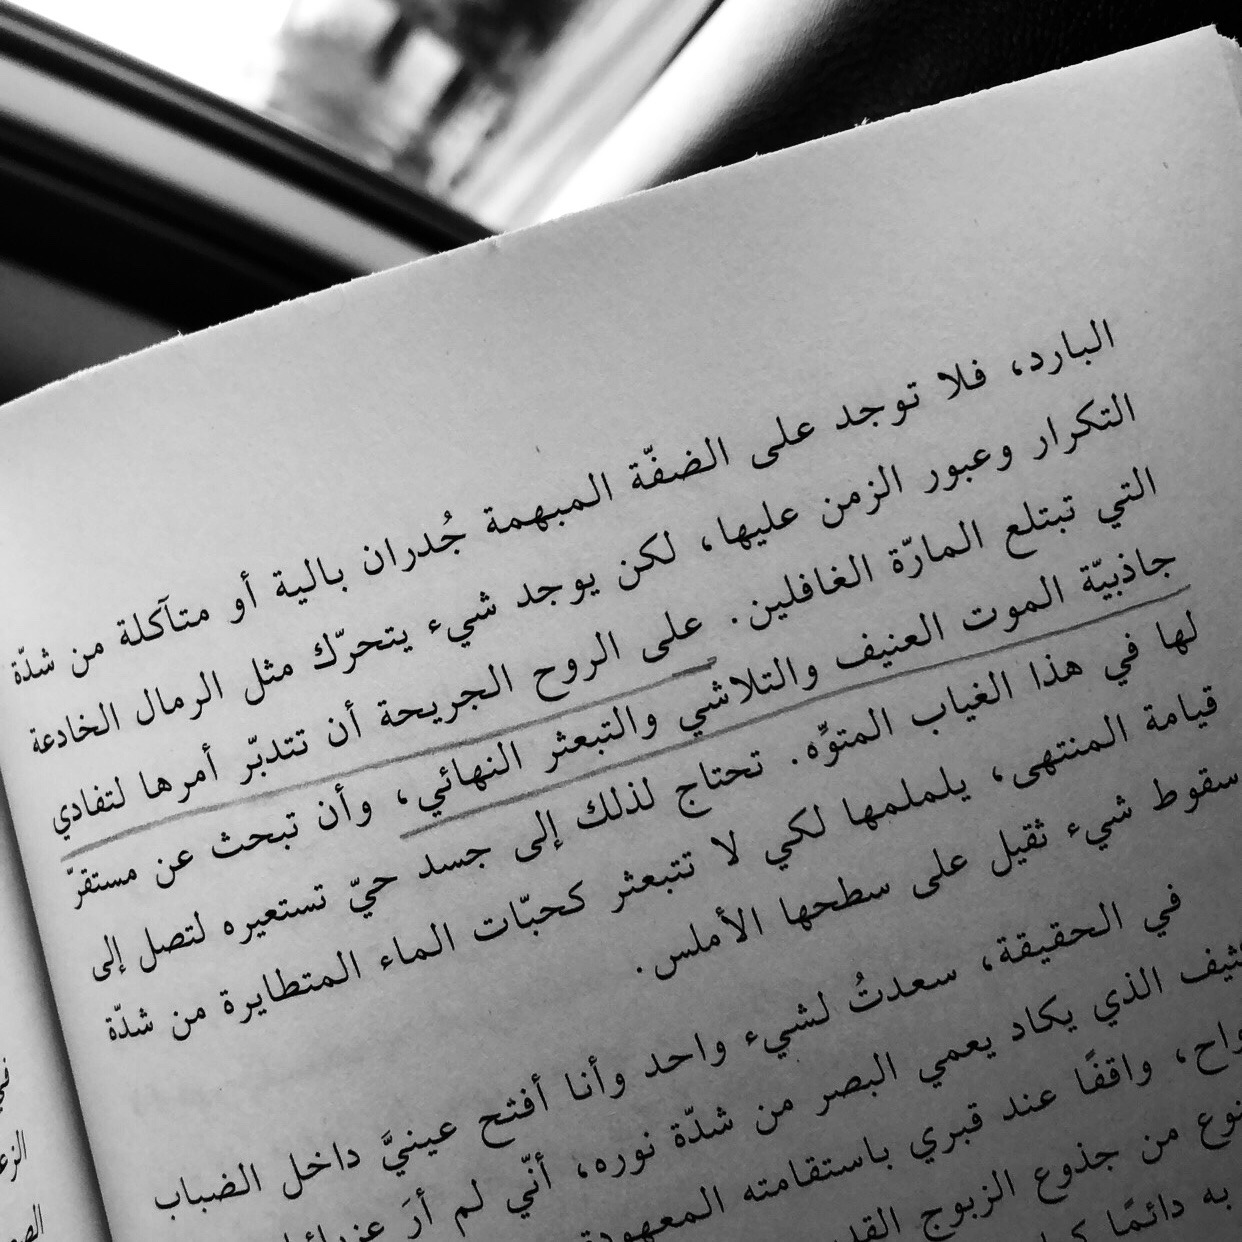 البارد، فلا توجد على الضفّة المبهمة جُدران بالية أو متآكلة من شدّة
التكرار وعبور الزمن عليها، لكن يوجد شيء يتحرّك مثل الرمال الخادعة
التي تبتلع المارّة الغافلين. على الروح الجريحة أن تتدبّر أمرها لتفادي
جاذبيّة الموت العنيف والتلاشي والتبعثر النهائي، وأن تبحث عن مستقرّ
لها في هذا الغياب المتوِّه. تحتاج لذلك إلى جسد حيّ تستعيره لتصل إلى
قيامة المنتهى، يلملمها لكي لا تتبعثر كحبّات الماء المتطايرة من شدّة
سقوط شيء ثقيل على سطحها الأملس.
في الحقيقة، سعدتُ لشيء واحد وأنا أفتح عينيَّ داخل الضباب
الذي يكاد يعمي البصر من شدّة نوره، أنّي لم أرَ
واقفًا عند قبري باستقامته المعهودة
من جذوع الزبوج
به دائمًا